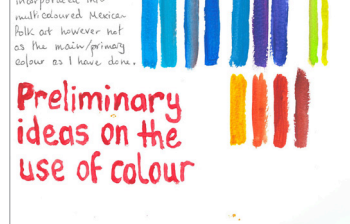 incorporated into
multicoloured Mexican
Folk art however not
as the main/primary
colour as I have done.
Preliminary
ideas on the
use of colour